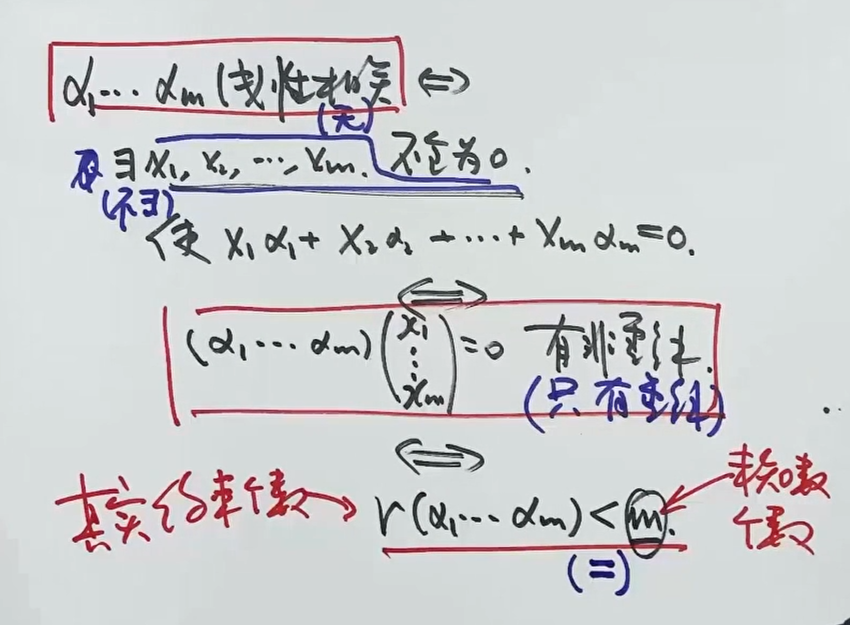 α₁…αm 线性相关 ⇔
(无)
∃ x₁, x₂, …, xm. 不全为0.
(不∃)
使 x₁α₁+x₂α₂+…+xmαm=0.
⇔
(α₁…αm)(x₁ ⋮ xm)=0 有非零解.
(只有零解)
⇔
真实约束个数→ r(α₁…αm)<m. ←未知数个数
(=)